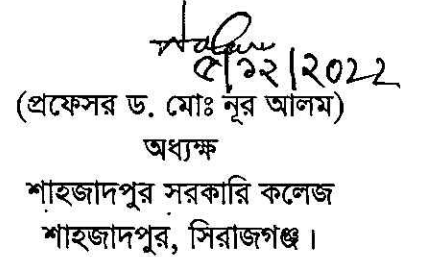 ৫/১২/2022
(প্রফেসর ড. মোঃ নূর আলম)
অধ্যক্ষ
শাহজাদপুর সরকারি কলেজ
শাহজাদপুর, সিরাজগঞ্জ।